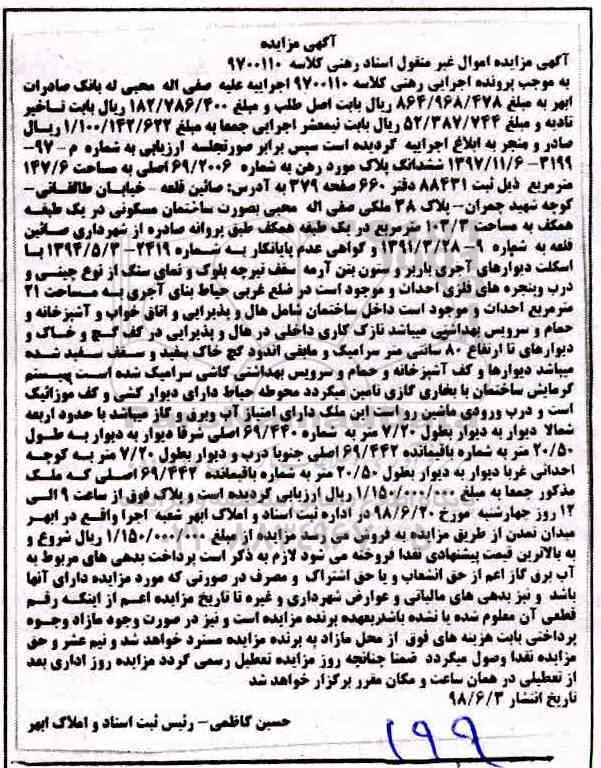 آگهی مزایده
آگهی مزایده اموال غیر منقول اسناد رهنی کلاسه ۹۷۰۰۱۱۰
به موجب پرونده اجرایی رهنی کلاسه ۹۷۰۰۱۱۰ اجراییه علیه صفی اله محبی له بانک صادرات
ابهر به مبلغ ۸۶۴/۹۶۸/۴۷۸ ریال بابت اصل طلب و مبلغ ۱۸۲/۷۸۶/۴۰۰ ریال بابت تاخیر
تادیه و مبلغ ۵۲/۳۸۷/۷۴۴ ریال بابت نیمعشر اجرایی جمعا به مبلغ ۱/۱۰۰/۱۴۲/۶۲۲ ریال
صادر و منجر به ابلاغ اجراییه گردیده است سپس برابر صورتجلسه ارزیابی به شماره م - ۹۷-
۳۱۹۹-۱۳۹۷/۱۱/۶ ششدانگ پلاک مورد رهن به شماره ۶۹/۲۰۰۶ اصلی به مساحت ۱۴۷/۶
مترمربع ذیل ثبت ۸۸۴۳۱ دفتر ۶۶۰ صفحه ۳۷۹ به آدرس: صائین قلعه - خیابان طالقانی-
کوچه شهید چمران- پلاک ۳۸ ملکی صفی اله محبی بصورت ساختمان مسکونی در یک طبقه
همکف به مساحت ۱۰۲/۳ مترمربع در یک طبقه همکف طبق پروانه صادره از شهرداری صائین
قلعه به شماره ۹- ۱۳۹۱/۳/۲۸ و گواهی عدم پایانکار به شماره ۲۴۱۹- ۱۳۹۴/۵/۳ با
اسکلت دیوارهای آجری باربر و ستون بتن آرمه سقف تیرچه بلوک و نمای سنگ از نوع چینی و
درب وپنجره های فلزی احداث و موجود است در ضلع غربی حیاط بنای آجری به مساحت ۲۱
مترمربع احداث و موجود است داخل ساختمان شامل هال و پذیرایی و اتاق خواب و آشپزخانه و
حمام و سرویس بهداشتی میباشد نازک کاری داخلی در هال و پذیرایی در کف گچ و خاک و
دیوارهای تا ارتفاع ۸۰ سانتی متر سرامیک و مابقی اندود گچ خاک سفید و سقف سفید شده
میباشد دیوارها و کف آشپزخانه و حمام و سرویس بهداشتی کاشی سرامیک شده است سیستم
گرمایش ساختمان با بخاری گازی تامین میگردد محوطه حیاط دارای دیوار کشی و کف موزائیک
است و درب ورودی ماشین رو است این ملک دارای امتیاز آب وبرق و گاز میباشد با حدود اربعه
شمالا دیوار به دیوار بطول ۷/۲۰ متر به شماره ۶۹/۴۴۰ اصلی شرقا دیوار به دیوار به طول
۲۰/۵۰ متر به شماره باقیمانده ۶۹/۴۴۲ اصلی جنوبا درب و دیوار بطول ۷/۲۰ متر به کوچه
احداثی غربا دیوار به دیوار بطول ۲۰/۵۰ متر به شماره باقیمانده ۶۹/۴۴۲ اصلی که ملک
مذکور جمعا به مبلغ ۱/۱۵۰/۰۰۰/۰۰۰ ریال ارزیابی گردیده است و پلاک فوق از ساعت ۹ الی
۱۲ روز چهارشنبه مورخ ۹۸/۶/۲۰ در اداره ثبت اسناد و املاک ابهر شعبه اجرا واقع در ابهر
میدان تمدن از طریق مزایده به فروش می رسد مزایده از مبلغ ۱/۱۵۰/۰۰۰/۰۰۰ ریال شروع و
به بالاترین قیمت پیشنهادی نقدا فروخته می شود لازم به ذکر است پرداخت بدهی های مربوط به
آب برق گاز اعم از حق انشعاب و یا حق اشتراک و مصرف در صورتی که مورد مزایده دارای آنها
باشد و نیز بدهی های مالیاتی و عوارض شهرداری و غیره تا تاریخ مزایده اعم از اینکه رقم
قطعی آن معلوم شده یا نشده باشدبعهده برنده مزایده است و نیز در صورت وجود مازاد وجوه
پرداختی بابت هزینه های فوق از محل مازاد به برنده مزایده مسترد خواهد شد و نیم عشر و حق
مزایده نقدا وصول میگردد ضمنا چنانچه روز مزایده تعطیل رسمی گردد مزایده روز اداری بعد
از تعطیلی در همان ساعت و مکان مقرر برگزار خواهد شد
تاریخ انتشار ۹۸/۶/۳
حسین کاظمی- رئیس ثبت اسناد و املاک ابهر
۱۹۹